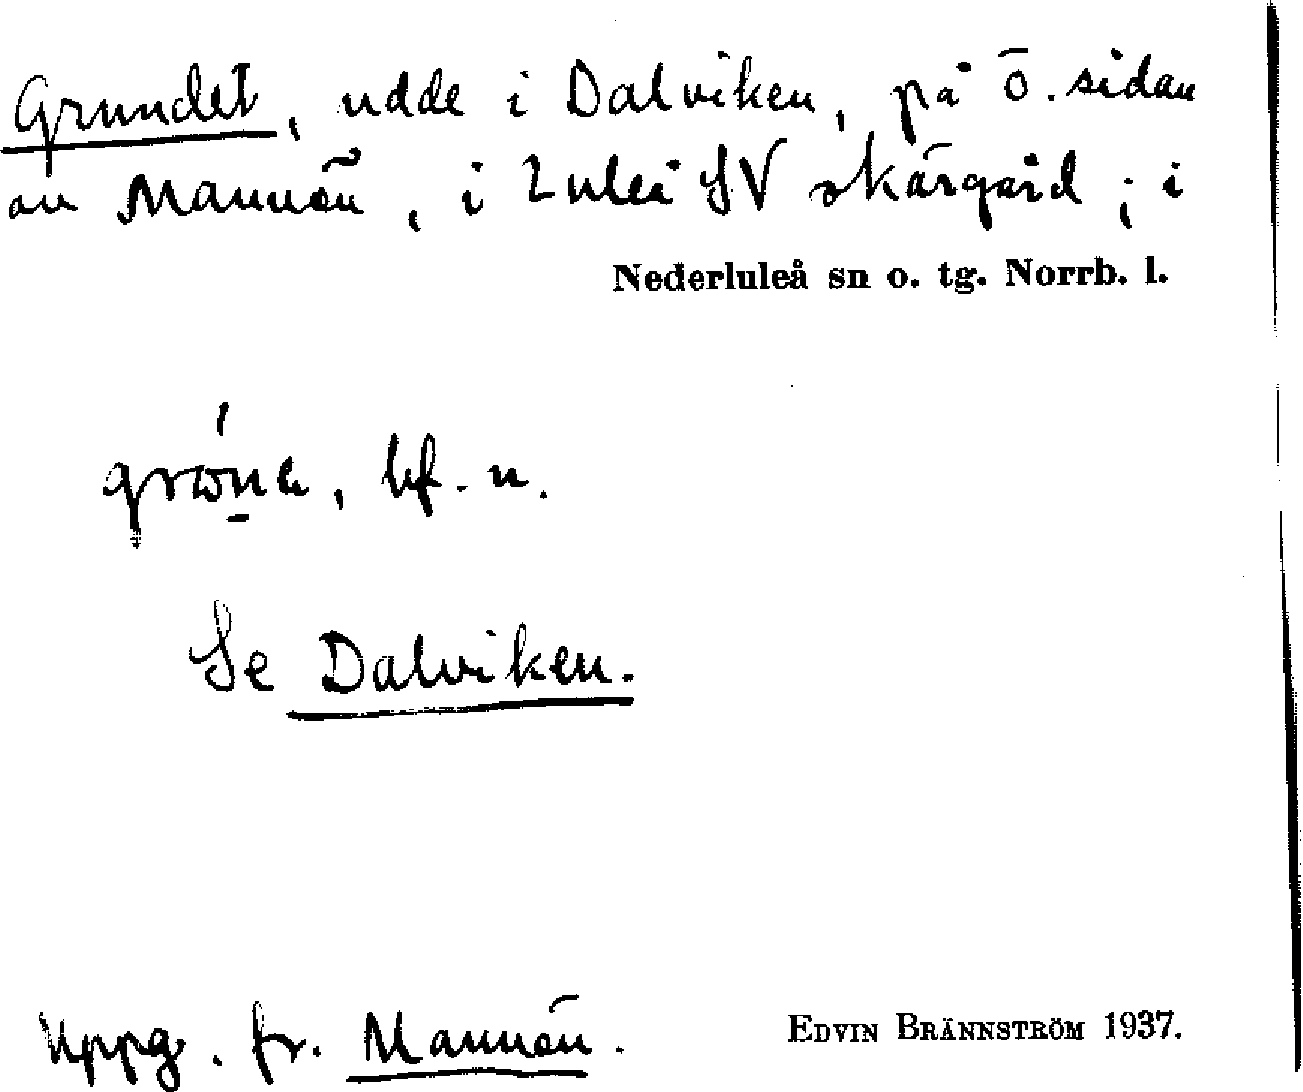 Grundet, udde i Dalviken, på ö. sidan
av Mannön, i Luleå SV skärgård; i
Nederluleå sn o. tg. Norrb. l.
bf. n.
Se Dalviken.
Uppg. fr. Mannön.
EDVIN BRÄNNSTRÖM 1937.